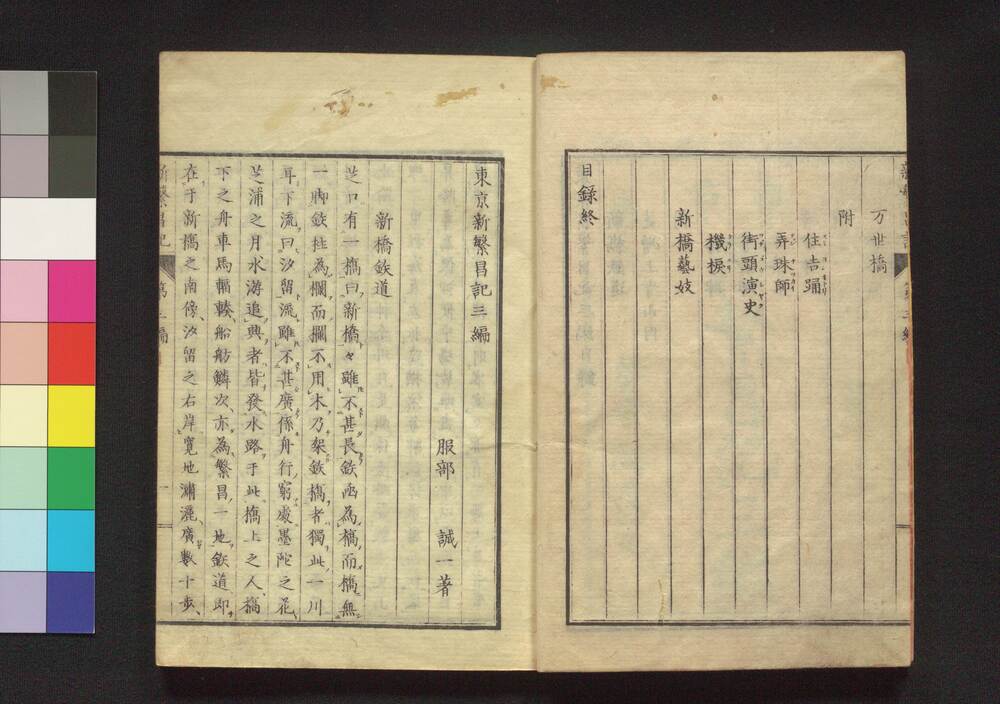 万世橋
附
住吉踊
弄珠師
街頭演史
機捩
新橋藝妓
目録終
東京新繁昌記三編
服部 誠一著
新橋鉄道
芝口有一橋曰新橋々雖不甚長鉄函為橋而橋無
一脚鉄拄為欄而欄不用木乃架鉄橋者獨此一川
耳下流曰汐留流雖不甚廣係舟行窮處墨陀之花
芝浦之月水游追興者皆發水路于此橋上之人橋
下之舟車馬輻輳船舫鱗次亦為繁昌一地鉄道即
在于新橋之南傍汐留之右岸寛地瀟灑廣數十歩